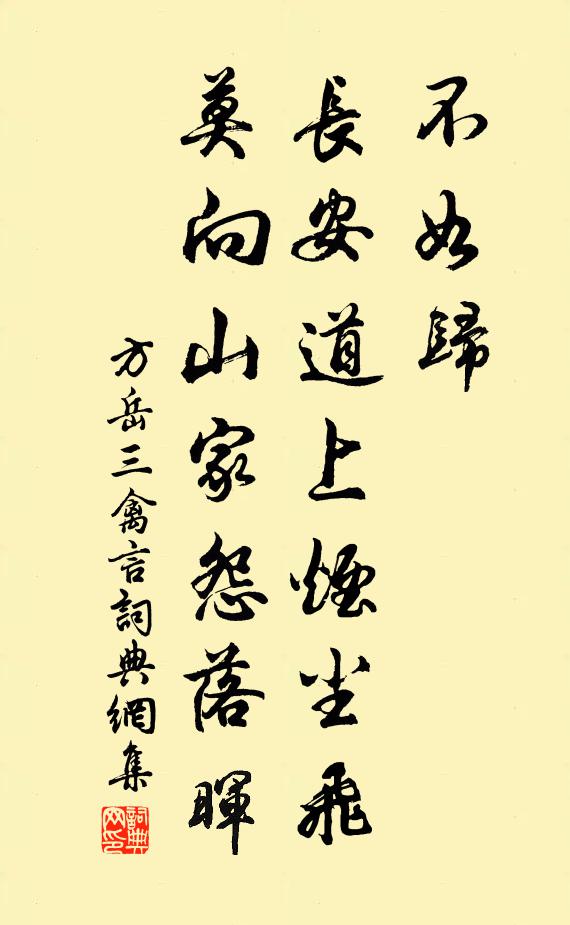 不如歸
長安道上煙尘飛
莫向山家怨落暉
方岳三禽言詞典網集
詞典网印